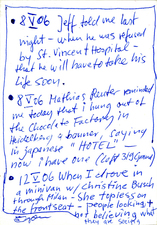 • 8 V 06 Jeff told me last
night – when he was refused
by St. Vincent Hospital –
that he will have to take his
life soon.
• 8 V 06 Mathias Reuter reminded
me today that I hung out of
the Chocolate Factory in
Heidelberg a banner, saying
in japanese "HOTEL" –
now i have one
• 12 V 06 When I drove in
a minivan w/ Christine Busch
through Milan – She topless on
the front seat – people looking &
not believing what
they are seeing